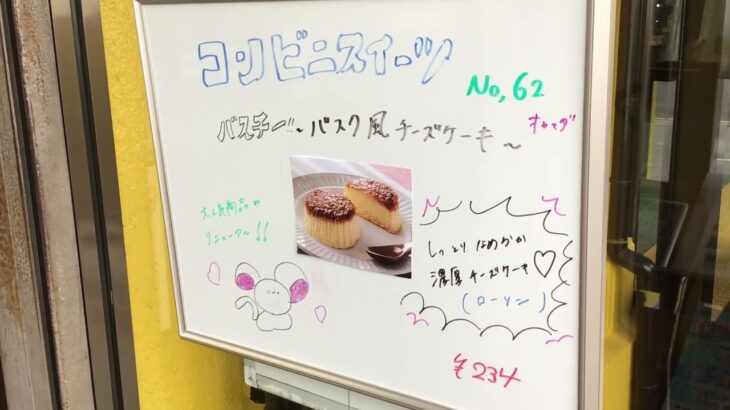 コンビニスイーツ
No,62
バスチー!!~バスク風チーズケーキ~
大人気商品の
リニューアル!!
しっとりなめらか
濃厚チーズケーキ♡
(ローソン)
¥234